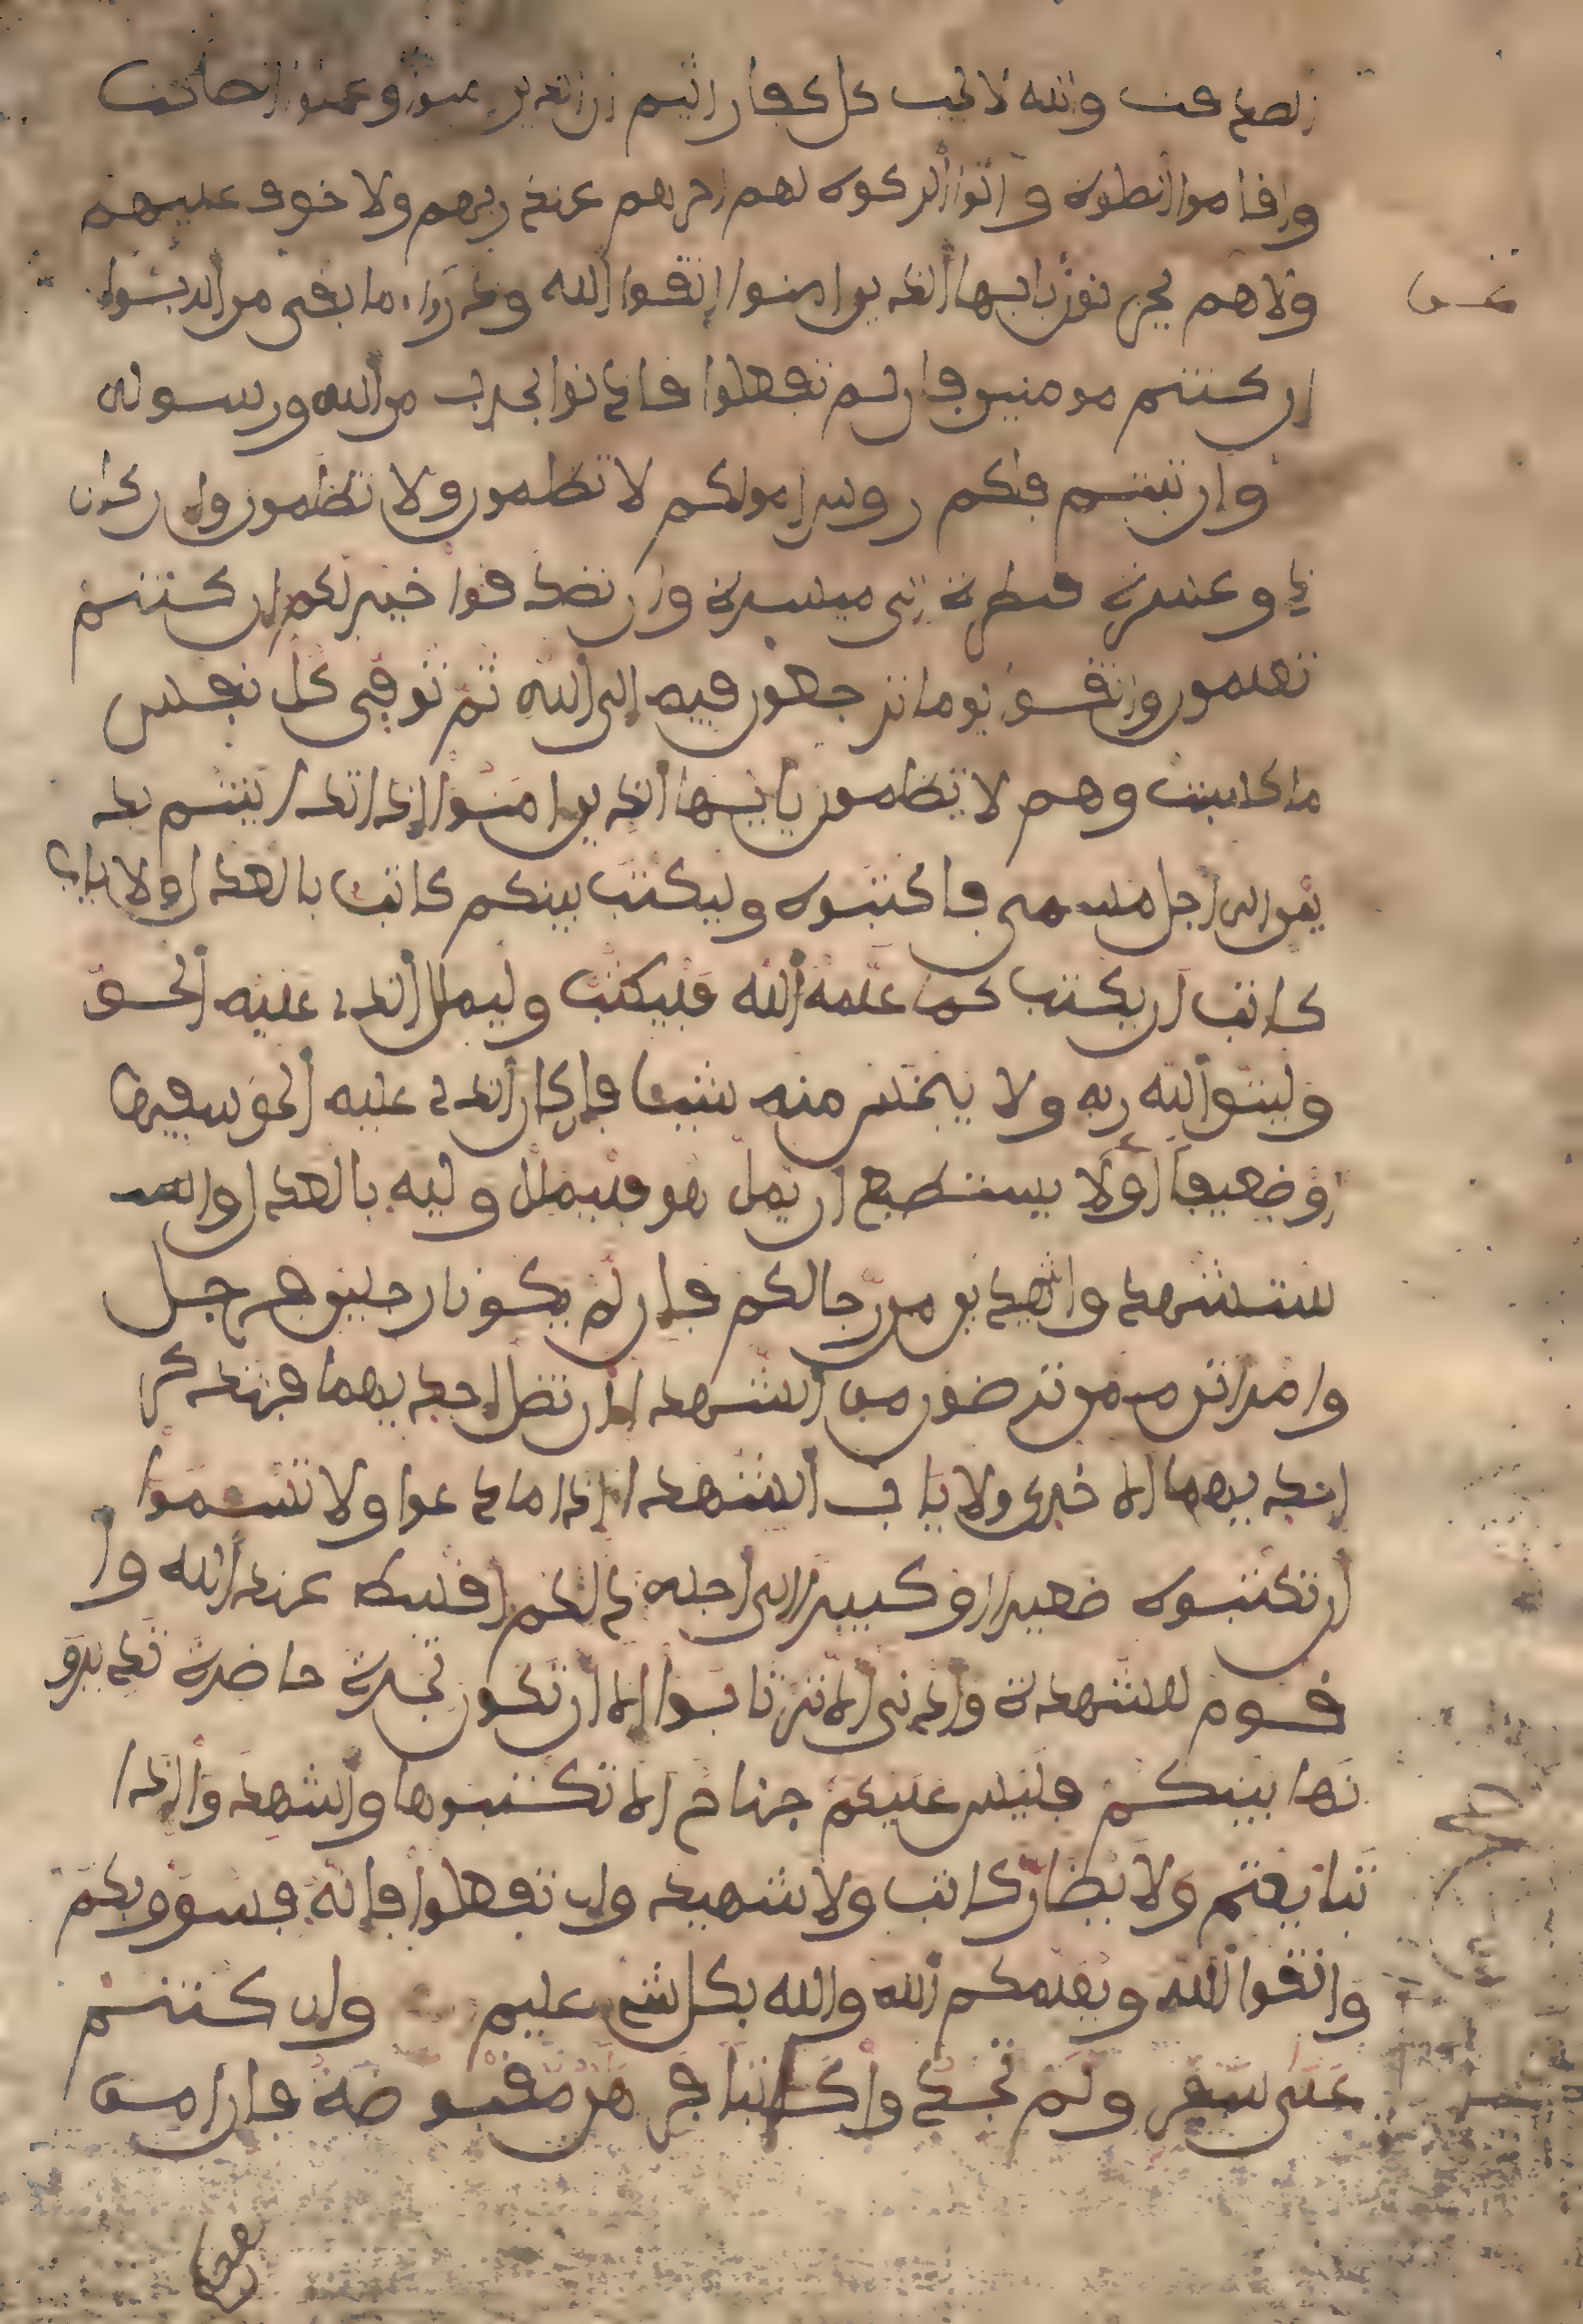 الصدقت والله لا يحب كل كفار اثيم ان الذين ءمنوا وعملوا الصلحت
واقاموا الصلوة وءاتوا الزكوة لهم اجرهم عند ربهم ولا خوف عليهم
ولا هم يحزنون يايها الذين امنوا اتقوا الله وذروا ما بقى من الربوا
ان كنتم مومنين فان لم تفعلوا فاذنوا بحرب من الله ورسوله
وان تبتم فلكم روس امولكم لا تظلمون ولا تظلمون وان كان
ذو عسرة فنظرة الى ميسرة وان تصدقوا خير لكم ان كنتم
تعلمون واتقوا يوما ترجعون فيه الى الله ثم توفى كل نفس
ما كسبت وهم لا يظلمون يايها الذين امنوا اذا تداينتم بد
ين الى اجل مسمى فاكتبوه وليكتب بينكم كاتب بالعدل ولا ياب
كاتب ان يكتب كما علمه الله فليكتب وليملل الذى عليه الحق
وليتق الله ربه ولا يبخس منه شيئا فان كان الذى عليه الحق سفيها
او ضعيفا او لا يستطيع ان يمل هو فليملل وليه بالعدل واست
ستشهدوا شهيدين من رجالكم فان لم يكونا رجلين فرجل
وامراتن ممن ترضون من الشهدا ان تضل احديهما فتذكر
احديهما الاخرى ولا ياب الشهدا اذا ما دعوا ولا تسموا
ان تكتبوه صغيرا او كبيرا الى اجله ذلكم اقسط عند الله وا
قوم للشهدة وادنى الا ترتابوا الا ان تكون تجرة حاضرة تديرو
نها بينكم فليس عليكم جناح الا تكتبوها واشهدوا اذا
تبايعتم ولا يضار كاتب ولا شهيد وان تفعلوا فانه فسوق بكم
واتقوا الله ويعلمكم الله والله بكل شى عليم وان كنتم
على سفر ولم تجدوا كاتبا فرهن مقبوضة فان امن